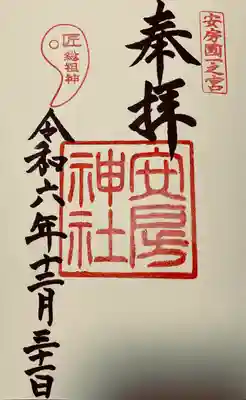 安房國一之宮
奉拝
安房神社
匠 総祖神
令和六年十二月三十一日